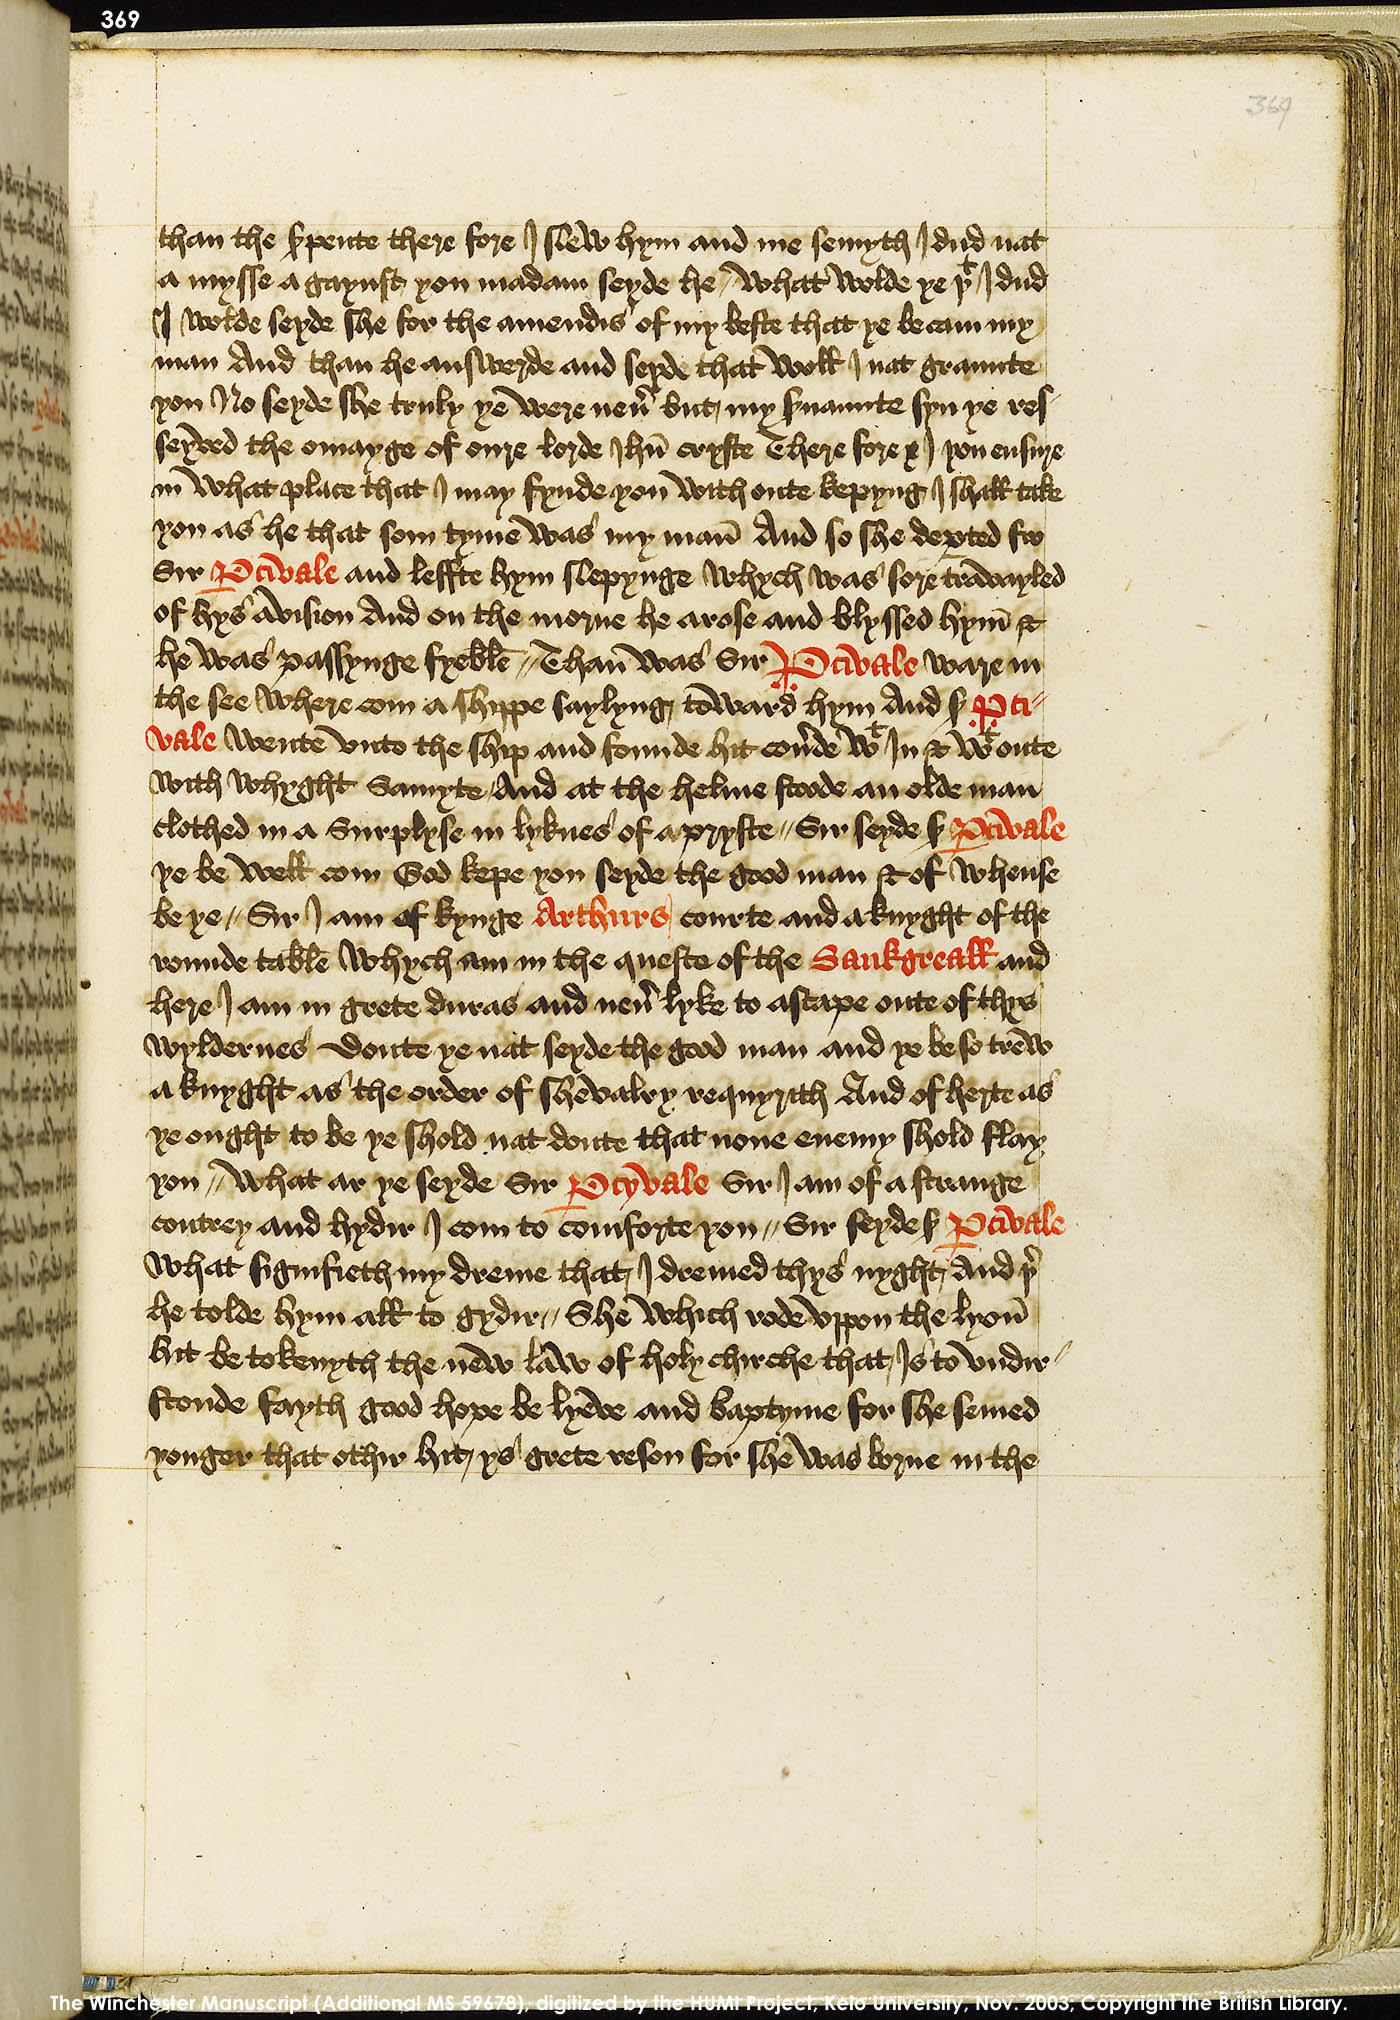 369
369
than the spente there fore I slew hym and me semyth I dud nat
a mysse a gaynst you madam seyde he // What wolde ye þt I dud
I wolde seyde she for the amendis of my beste that ye becam my
man And than he answerde and seyde that woll I nat graunte
you No seyde she truly ye were neũ but my sũaunte syn ye res-
seyved the omayge of oure lorde Ihũ cryste There fore I you ensure
in what place that I may fynde you with oute kepyng I shall take
you as he that som tyme was my man̄ And so she depted fro
Sir Pcivale and leffte hym slepynge whych was sore travayled
of hys avision And on the morne he arose and blyssed hym̄ &
he was passynge fyeble // Than̄ was Sir Pcivale ware in
the see where com a shippe saylyng toward hym And s̉ Pci-
vale wente vnto the ship and founde hit coũde wt In & wt oute
with whyght Samyte And at the helme stoode an olde man
clothed in a Surplyse in lyknes of a pryste // Sir seyde s̉ Pcivale
ye be well com God kepe you seyde the good man & of whense
be ye // Sir I am of kynge Arthurs courte and a knyght of the
rounde table whych am in the queste of the Sankgreall and
here I am in grete duras and neũ lyke to ascape oute of thys
wyldernes Doute ye nat seyde the good man and ye be so trew
a knyght as the order of shevalry requyrith And of herte as
ye ought to be ye shold nat doute that none enemy shold slay
you // What ar ye seyde Sir Pcyvale Sir I am of a straunge
contrey and hydir I com to comforte you // Sir seyde s̉ Pcivale
what signifieth my dreme that I dremed thys nyght And þ̉
he tolde hym all to gydir // She which rode vppon the lyon̄
hit be tokenyth the new law of holy chirche that Is to vndir-
stonde fayth good hope be lyeve and baptyme for she semed
yonger that othir hit ys grete reson for she was borne in the
The Winchester Manuscript (Additional MS 59678), digitized by the HUMI Project, Keio University, Nov. 2003, Copyright the British Library.